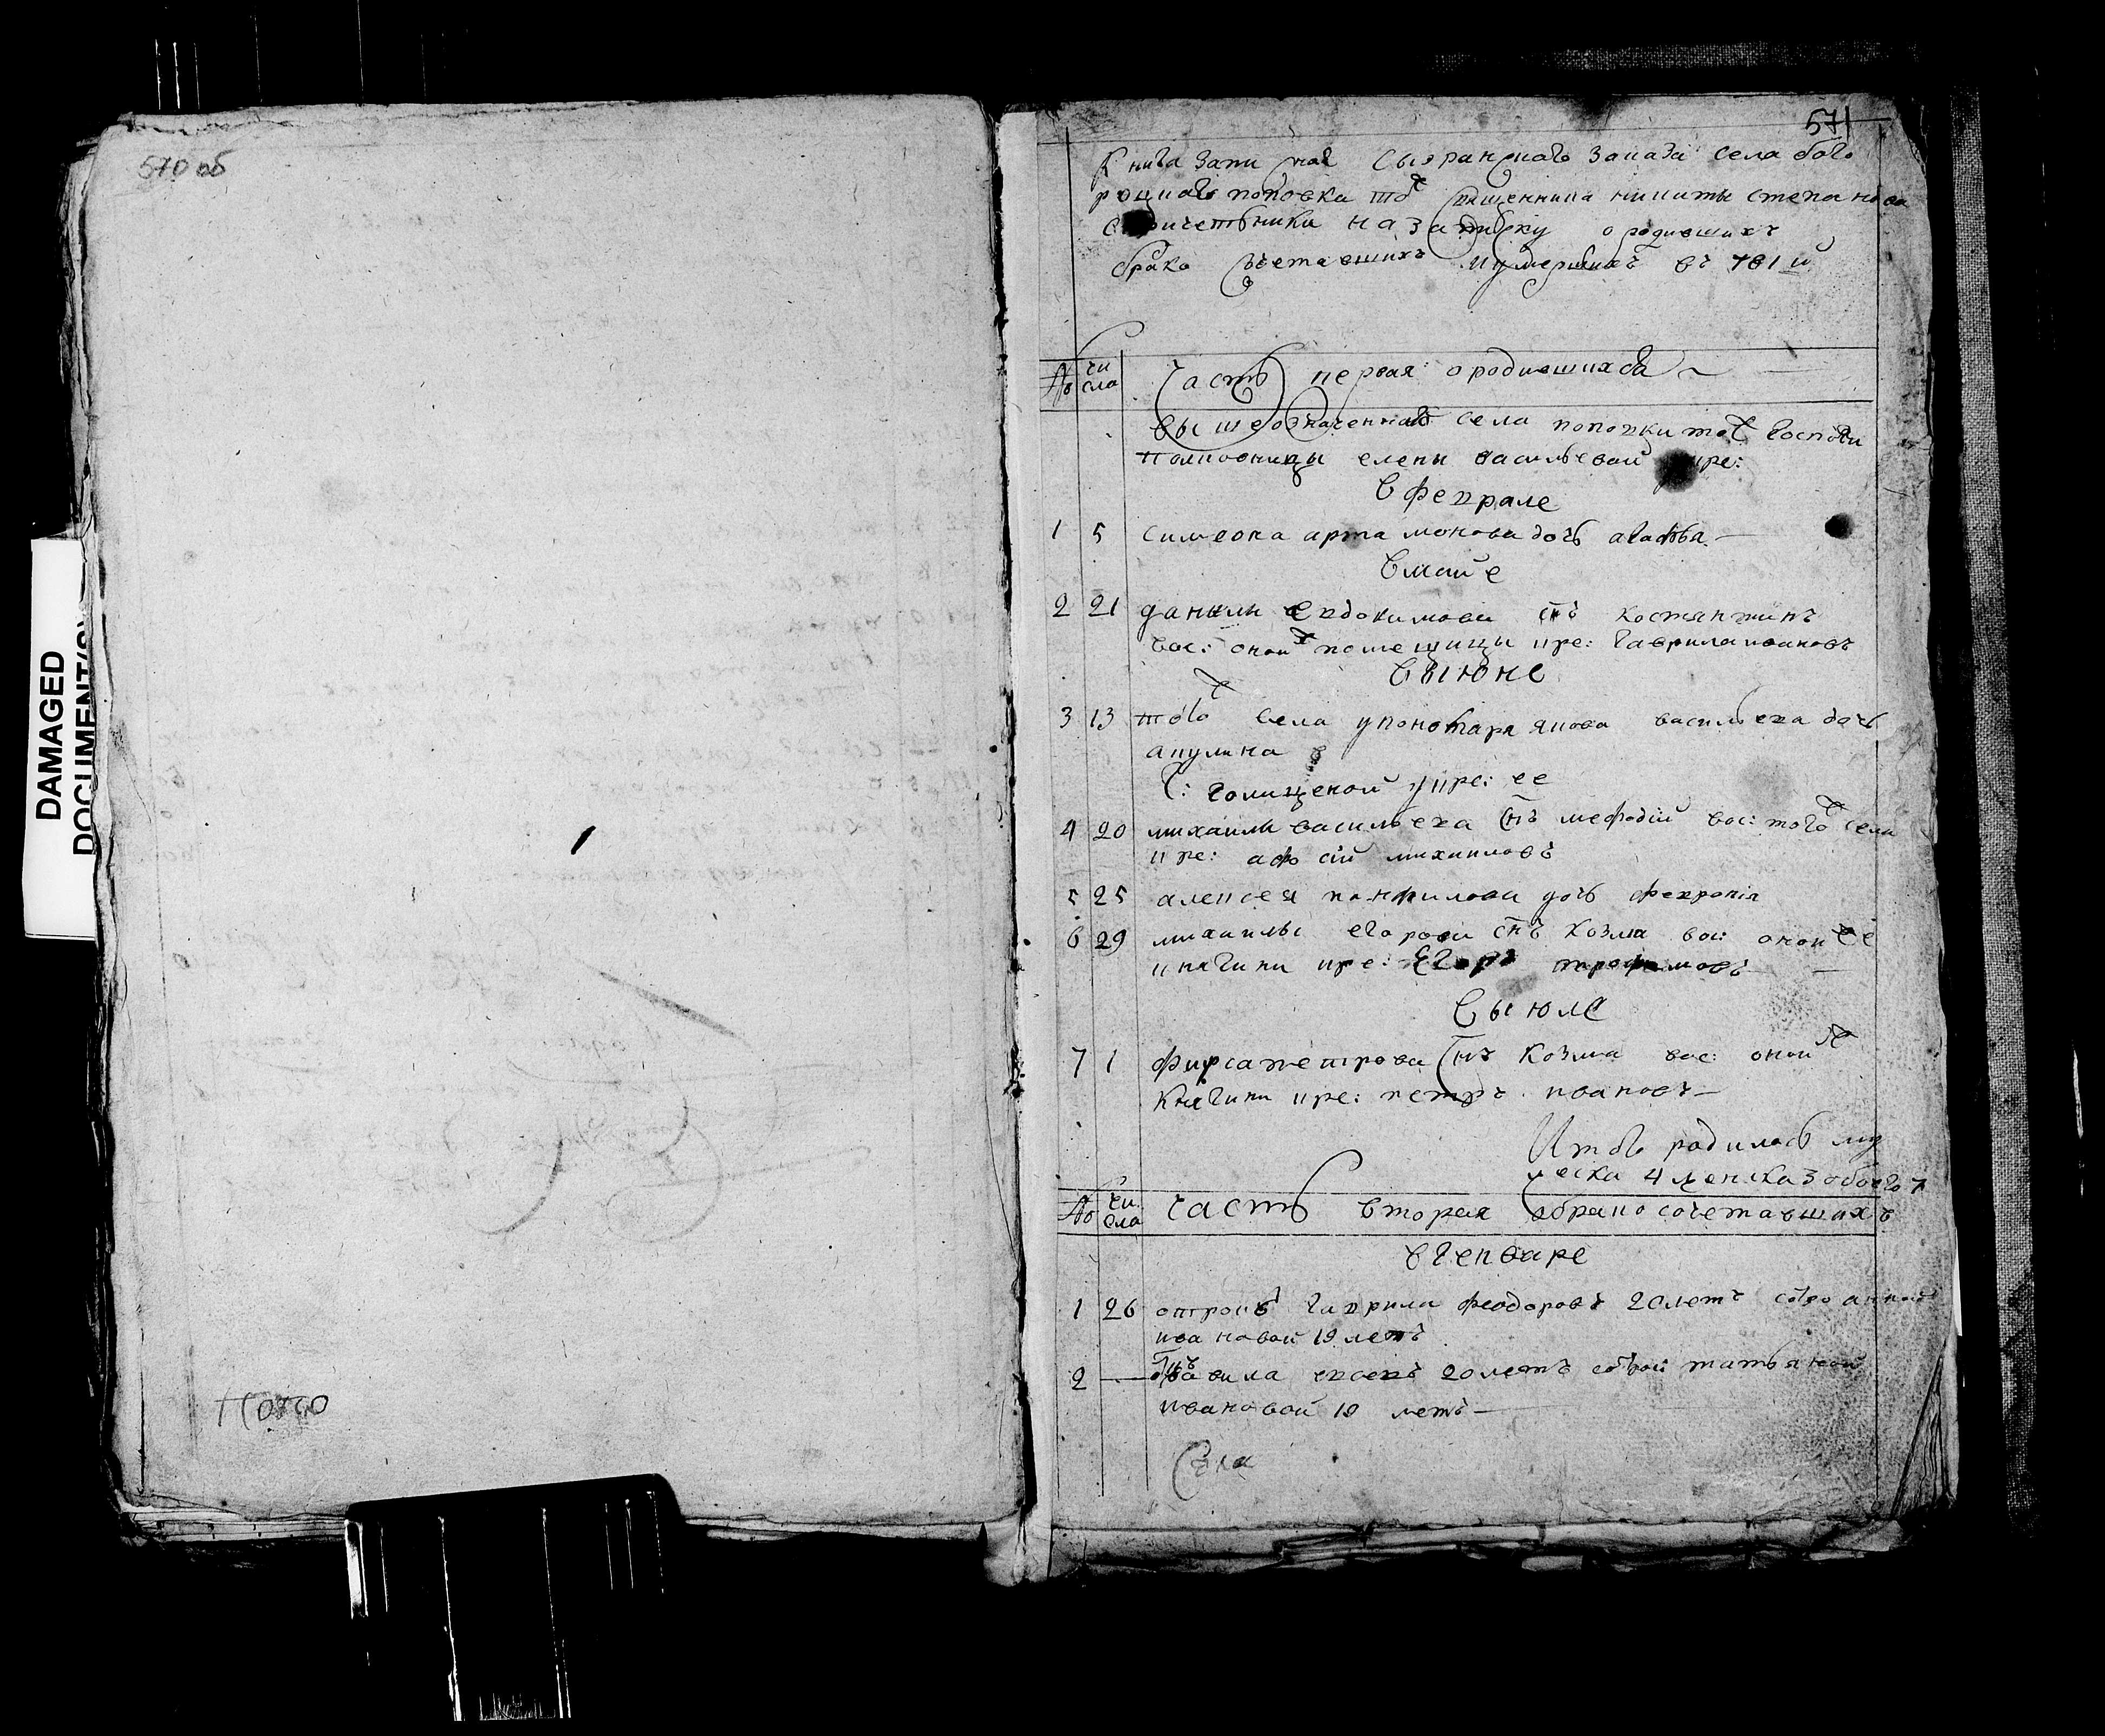 570 об
DAMAGED
DOCUMENT(S)
571
Книга запи ная Сызранскаго заказа села бого
роцкаго поповка тож священника никиты степанова
спричетники на записку о родившихъ
брако сочетавшихъ иумершихъ въ 781 й
№ чи сла Часть первая о родившихся
вышеозначеннаго села поповки тож госпожи
полковницы елены васильевой кре:
в феврале
1 5 симеона артамонова дочь агафья
в майе
2 21 данилы евдокимова снъ костянтинъ
вос: оной ж помещицы кре: гаврила ивановъ
в июне
3 13 того ж села у понотаря якова васильева дочь
акулина
к: голицыной у кре: ее
4 20 михаилы васильева снъ мефодий вос: того ж села
кре: михаиловъ
5 25 алексея панфилова дочь феврония
6 29 михаилы егорова снъ козма вос: оной же
княгини кре: Егоръ трофимовъ
в июле
7 1 фирса петрова снъ козма вос: оной ж
княгини кре: петръ ивановъ
Итого родилось му
жеска 4 женска 3 обоего 7
№ чи сла часть вторая о брако сочетавшихъ
в генваре
1 26 отрокъ гаврила феодоровъ 20 летъ анной
ивановой 19 летъ
2 20 летъ татьяной
ивановой 19 летъ
Села